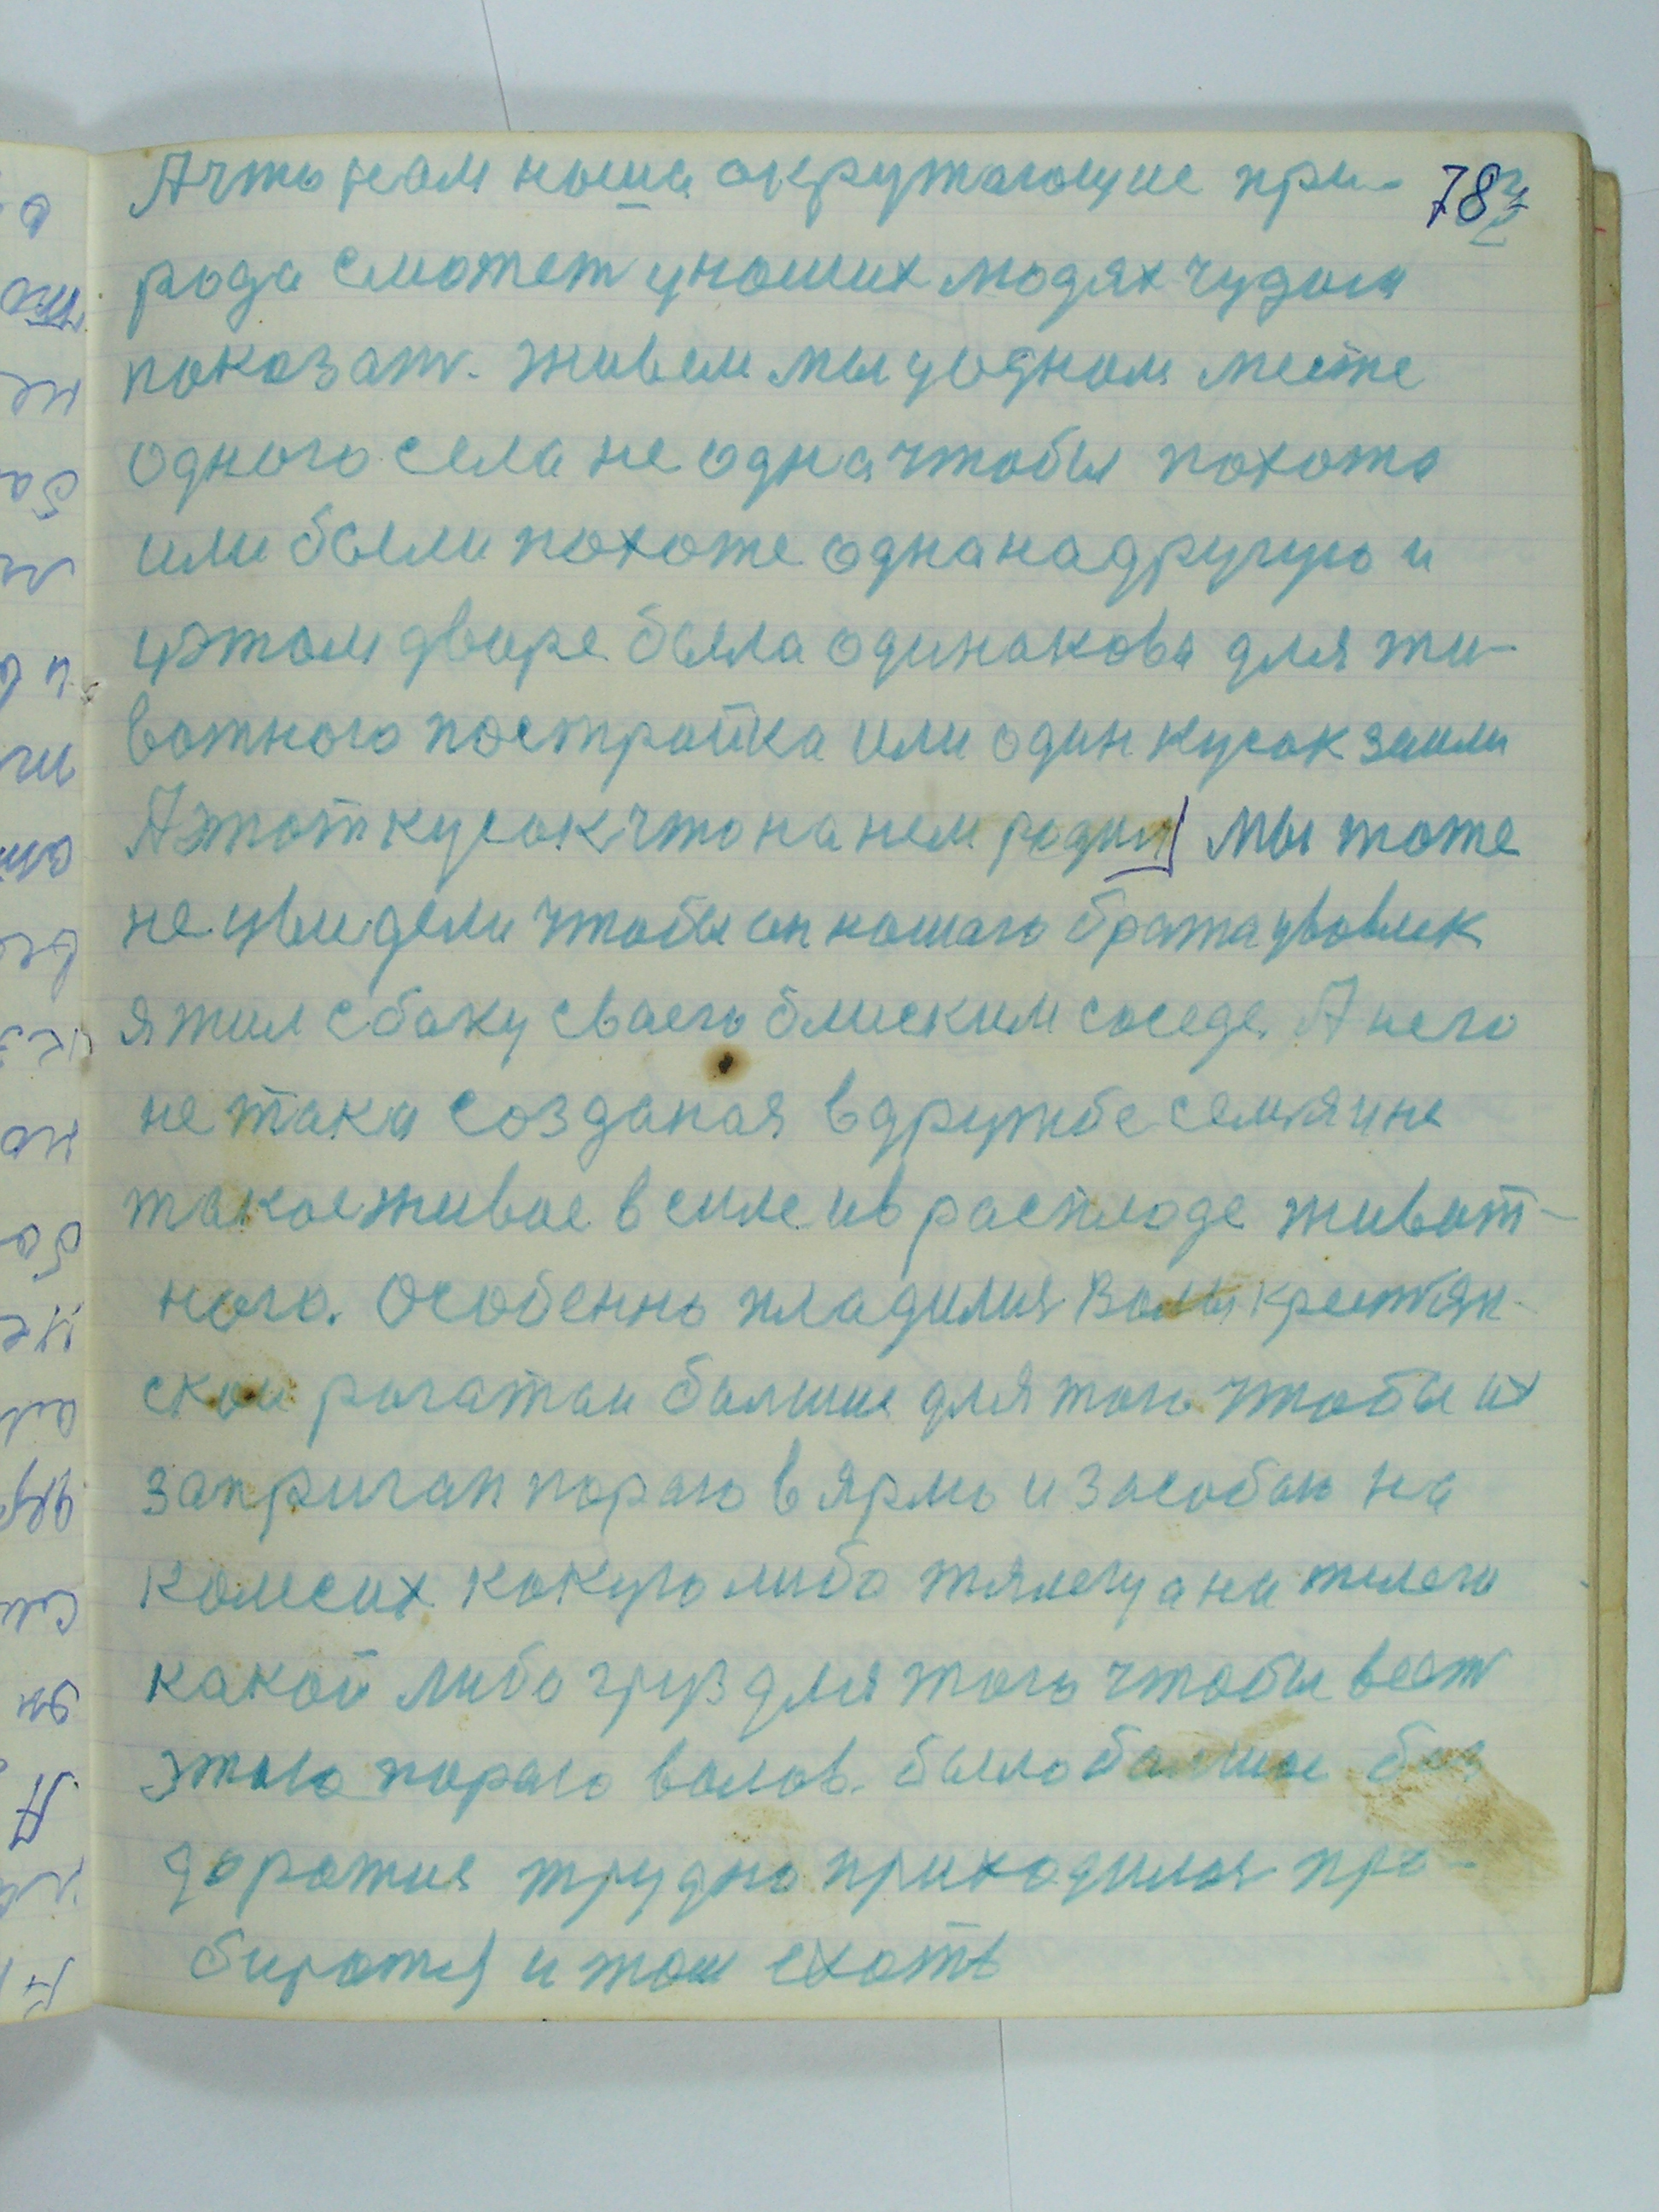 А что нам наша окружающие при- 78
рода сможет у наших людях чудом
показат. Живем мы у одном месте
одного села не одна чтобы похожа
или были похоже одна на другую и
у этом дворе была одинакова для жи-
вотного постройка или один кусок земли
А этот кусок что на нем родил мы тоже
не увидели чтобы он нашего брата увовлек
я жил с боку своего блиским соседа. А него
не така созданая в дружбе семя и не
такое живое в силе и в расплоде живот-
ного. Особенно пладился Волы крестян-
ской рогатаи больше для того чтобы их
запригап пораю в ярмо и засобою на
колесах какуюлибо тялегу а на телеги
какой либо груз для того чтобы вест
этаго пораю волов. было больше без
дорожия трудно приходился про-
биратся и там ехать